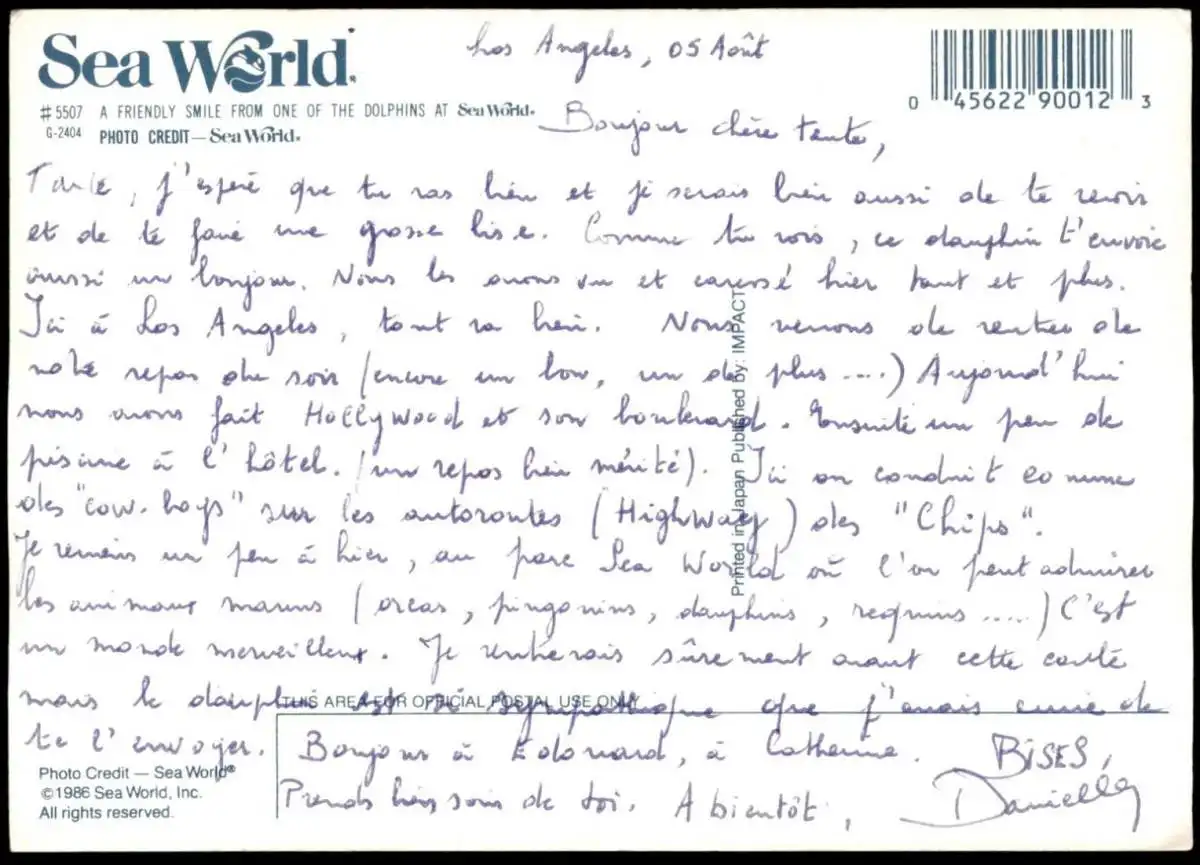 Sea World®
Los Angeles, 05 Août
#5507 A FRIENDLY SMILE FROM ONE OF THE DOLPHINS AT Sea World®
G-2404 PHOTO CREDIT—Sea World®
0 45622 90012 3
Bonjour chère tante,
Tante, j'espère que tu vas bien et je serais bien aussi de te revoir
et de te faire une grosse bise. Comme tu vois, ce dauphin t'envoie
aussi un bonjour. Nous les avons vu et caressé hier tant et plus.
Ici à Los Angeles, tout va bien. Nous venons de rentrer de
notre repas du soir (encore un bon, un de plus ....) Aujourd'hui
nous avons fait Hollywood et son boulevard. Ensuite un peu de
piscine à l'hôtel. (un repos bien mérité). Ici on conduit comme
des "cow-boys" sur les autoroutes (Highway) des "Chips".
Je reviens un peu à hier, au parc Sea World où l'on peut admirer
les animaux marins (orcas, pingouins, dauphins, requins .....) C'est
un monde merveilleux. Je rentrerais sûrement avant cette carte
mais le dauphin est si sympathique que j'avais envie de
te l'envoyer. Bonjour à Edouard, à Catherine. BISES,
Prends bien soin de toi. A bientôt, Danielle
Printed in Japan Published by: IMPACT
THIS AREA FOR OFFICIAL POSTAL USE ONLY
Photo Credit — Sea World®
©1986 Sea World, Inc.
All rights reserved.